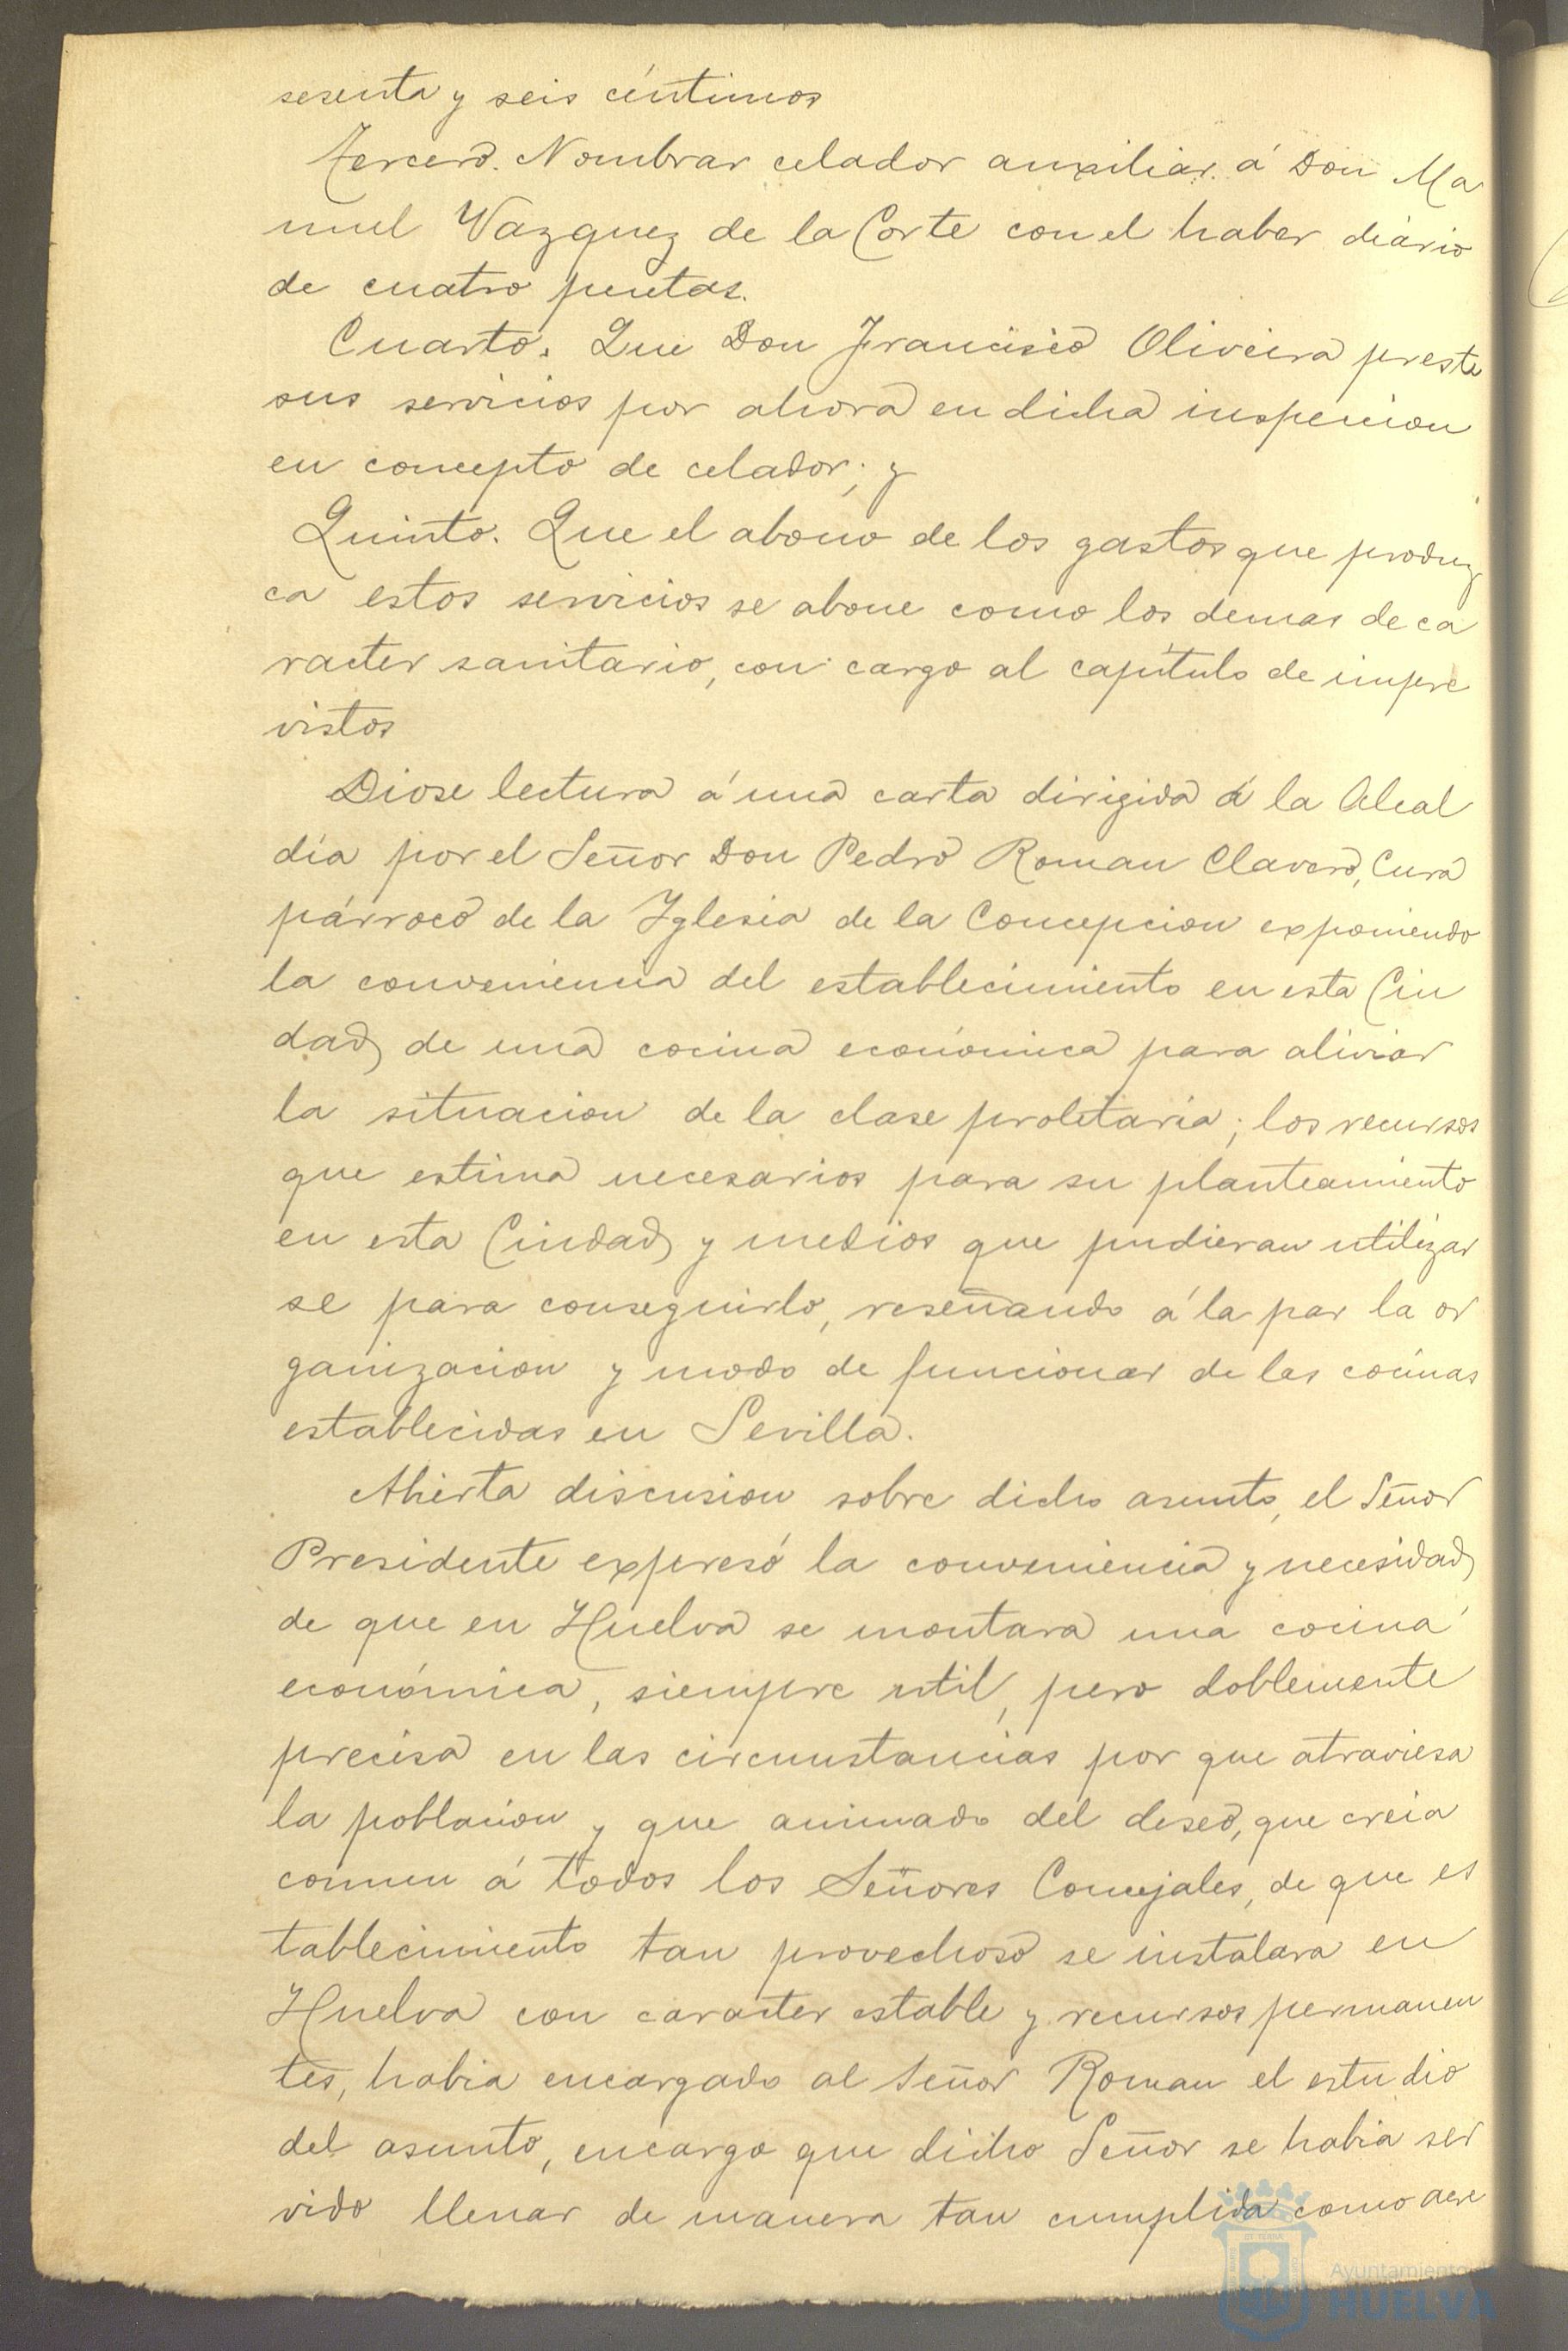 sesenta y seis céntimos
Tercero. Nombrar celador auxiliar á Don Ma
nuel Vazquez de la Corte con el haber diario
de cuatro pesetas.
Cuarto. Que Don Francisco Oliveira preste
sus servicios por ahora en dicha inspeccion
en concepto de celador; y
Quinto. Que el abono de los gastos que produz
ca estos servicios se abone como los demas de ca
racter sanitario, con cargo al capítulo de impre
vistos
Diose lectura á una carta dirigida á la Alcal
día por el Señor Don Pedro Roman Clavero, Cura
párroco de la Yglesia de la Concepcion exponiendo
la conveniencia del establecimiento en esta Ciu
dad de una cocina económica para aliviar
la situacion de la clase proletaria; los recursos
que estima necesarios para su planteamiento
en esta Ciudad y medios que pudieran utilizar
se para conseguirlo, reseñando á la par la or
ganizacion y modo de funcionar de las cocinas
establecidas en Sevilla.
Abierta discusion sobre dicho asunto, el Señor
Presidente expresó la conveniencia y necesidad
de que en Huelva se montara una cocina
económica, siempre util, pero doblemente
precisa en las circunstancias por que atraviesa
la poblacion y que animado del deseo, que creia
comun á todos los Señores Concejales, de que es
tablecimiento tan provechoso se instalara en
Huelva con caracter estable y recursos permanen
tes, habia encargado al Señor Roman el estudio
del asunto, encargo que dicho Señor se habia ser
vido llenar de manera tan cumplida como acre
Ayuntamiento de
HUELVA